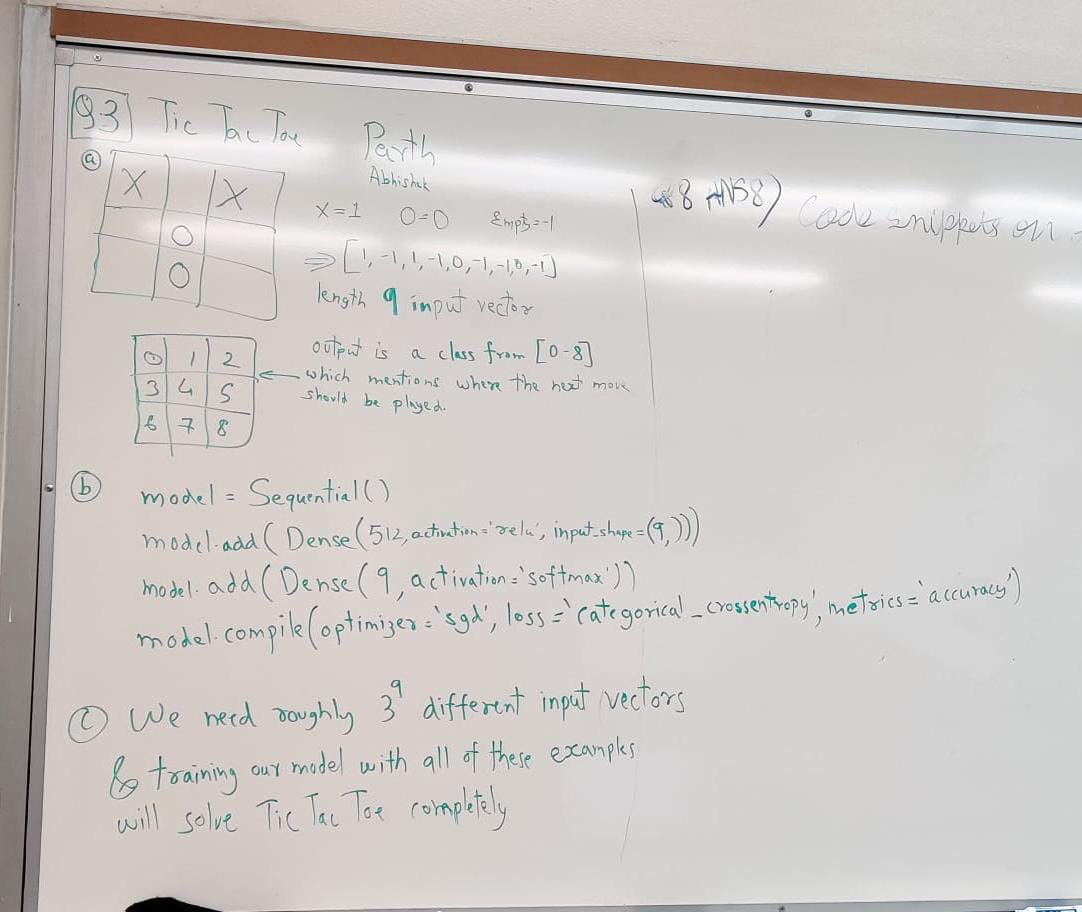 Q.3) Tic Tac Toe Parth
Abhishek
ⓐ
X X
O
O
X=1 O=0 Empty=-1
⇒ [1,-1,1,-1,0,-1,-1,0,-1]
length 9 input vector
0 1 2
3 4 5
6 7 8
output is a class from [0-8]
which mentions where the next move
should be played.
ⓑ model = Sequential()
model.add(Dense(512,activation='relu', input_shape=(9,)))
model.add(Dense(9,activation='softmax'))
model.compile(optimizer='sgd', loss='categorical_crossentropy', metrics='accuracy')
ⓒ We need roughly 3⁹ different input vectors
& training our model with all of these examples
will solve Tic Tac Toe completely
8 ANS8) Code snippets on